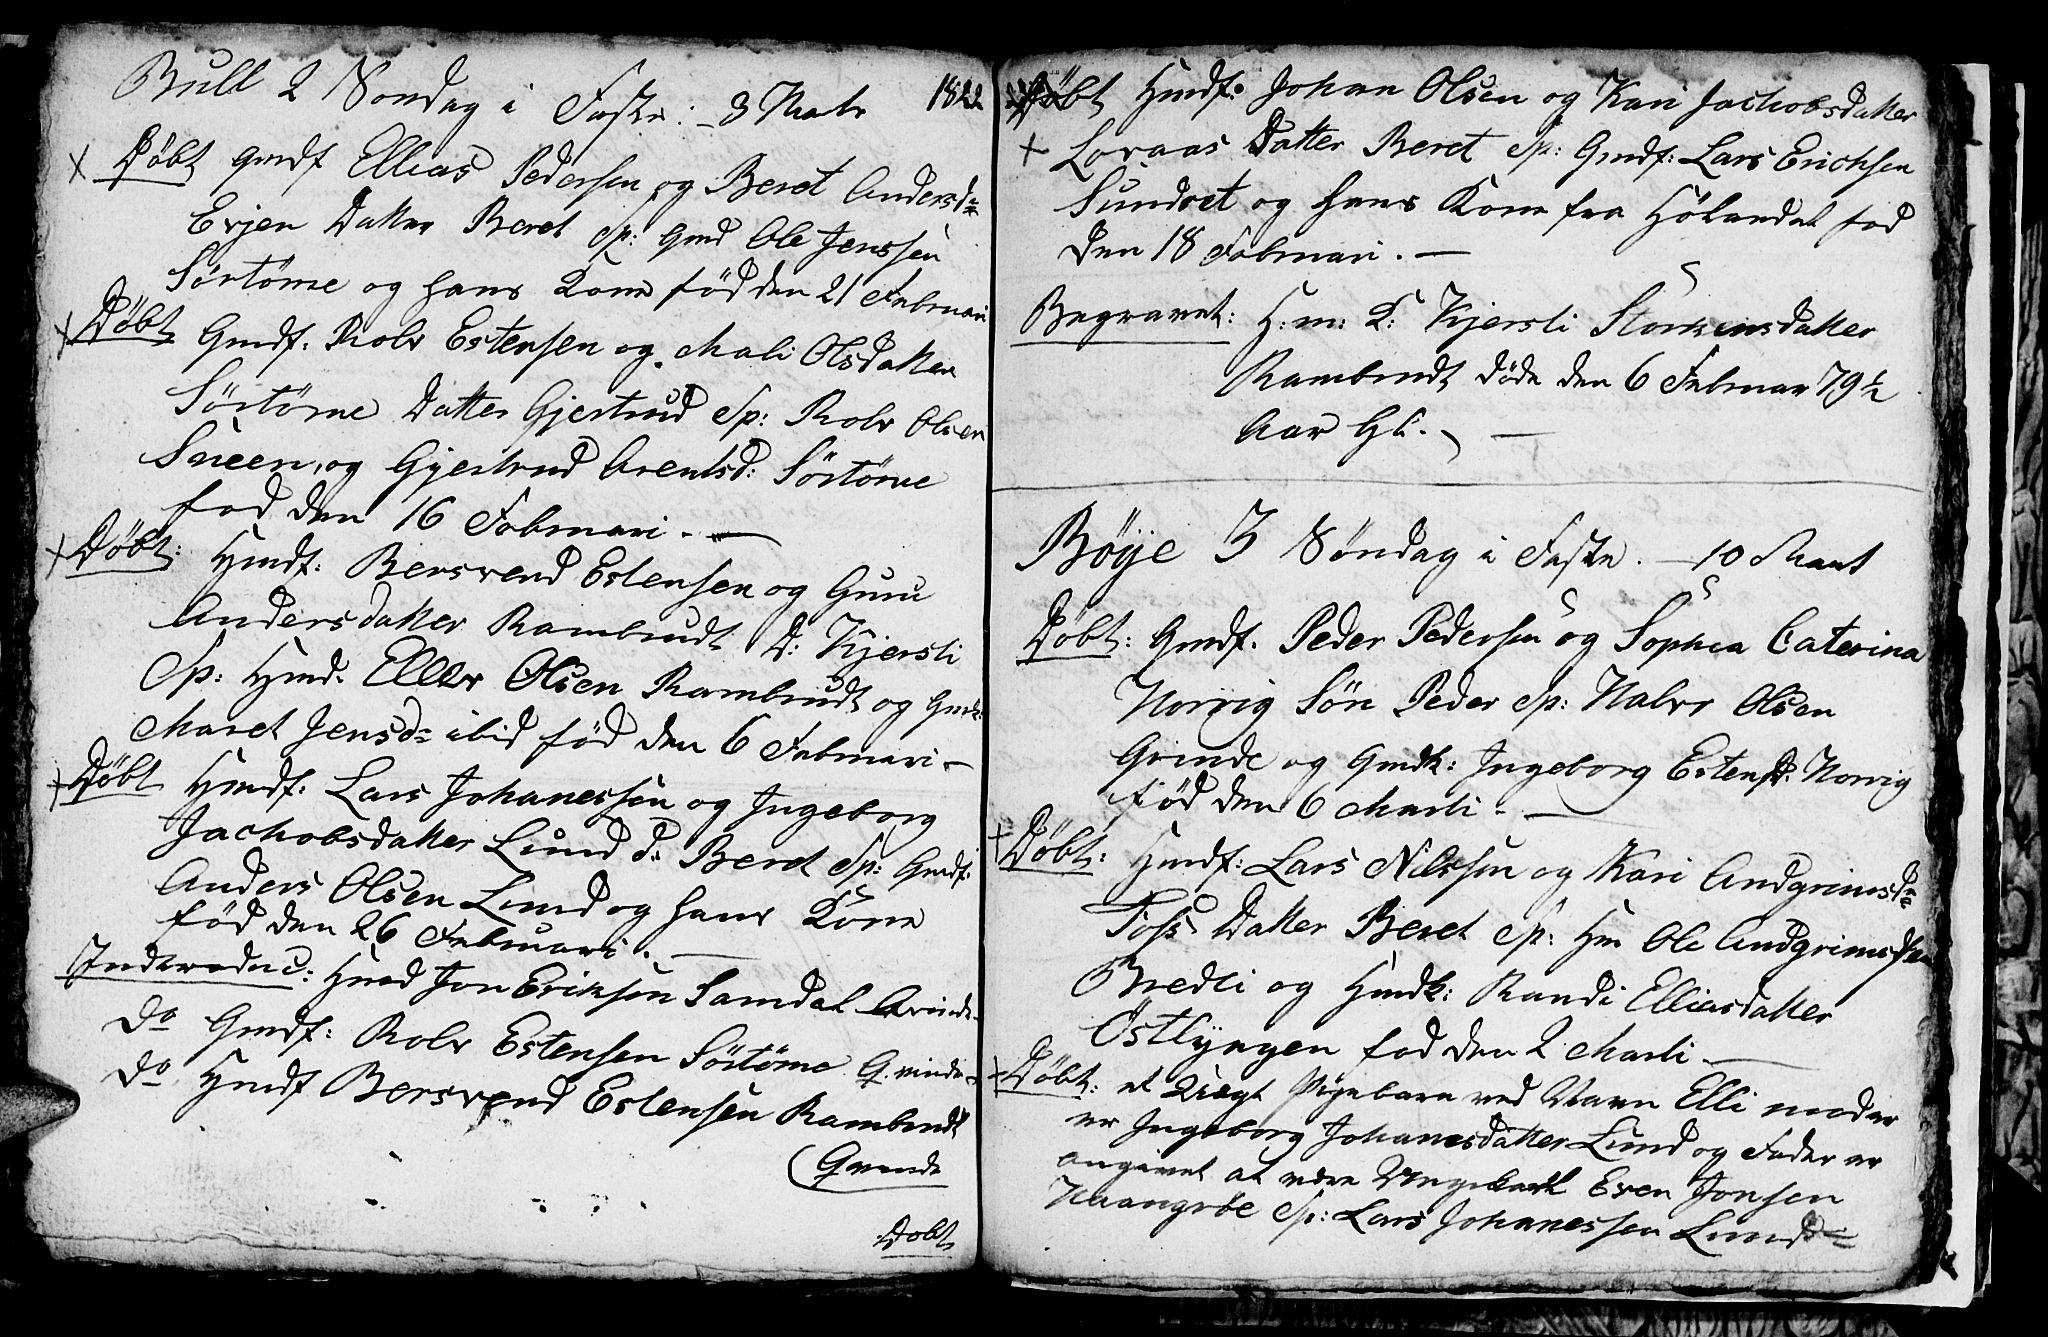 Bull 2 Søndag i Faste: 3 Marts 1822
x Døbt Gmdf Ellias Pedersen og Beret Andersd=
Evjen Datter Beret Sp: Gmd Ole Jenssen
Sörtöme og hans Kone föd den 21 Februari
x Döbt Gmdf. Rolv Estensen og Mali Olsdatter
Sörtöme Datter Gjertrud Sp: Rolv Olsen
Sneen, og Gjertrud Arentsd: Sörtöme
fød den 16 Februari. —
x Döbt: Hmdf: Bersvend Estensen og Guru
Andersdatter Rambrudt D: Kjersti
Sp: Hmd. Ellev Olsen Rambrudt og Gmdk:
Maret Jensd= ibid föd den 6 Februari —
x Döbt Hmdf: Lars Johanessen og Ingeborg
Jachobsdatter Lund d: Beret Sp: Gmdf:
Anders Olsen Lund og hans Kone
föd den 26 Februari. —
Introduc: Hmd Jon Eriksen Samdal Qvinde
Do Gmdf: Rolv Estensen Sörtöme Qvinde
Do Hmdf Bersvend Estensen Rambrudt
(Qvinde
Döbt
Döbt Hmdf: Johan Olsen og Kari Jachobsdatter
x Loraas Datter Beret Sp: Gmdf: Lars Erichsen
Sundset og hans Kone fra Hölandet fød
den 18 Februari. —
Begravet: H:m: K: Kjersti Störkersdatter
Rambrudt döde den 6 Februar 79½
Aar Gl. —
Böye 3 Søndag i Faste. — 10 Mart
Döbt: Gmdf. Peder Pedersen og Sophia Caterina
Norvig Sön Peder Sp: Halvr Olsen
Grinde og Gmdk: Ingeborg Estensd: Norvig
föd den 6 Marti. —
x Döbt: Hmdf: Lars Nilssen og Kari Andgrimsd=
Foss Datter Beret Sp: Hm Ole Andgrimssen
Bredli og Hmdk: Randi Elliasdatter
Östlyngen fød den 2 Marti —
Döbt: et Uægt Pigebarn ved Navn Elli moder
er Ingeborg Johanesdatter Lund og Fader er
angivet at være Ungekarl Even Jonsen
Haangröe Sp: Lars Johanessen Lund